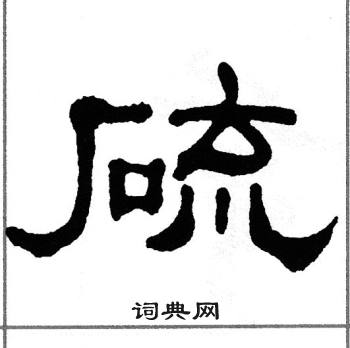 硫
词典网